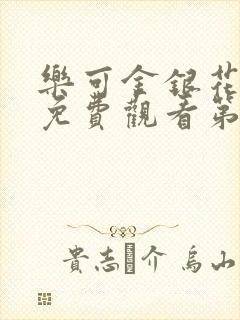 樂可金銀花
免費觀看第
貴志介 烏山